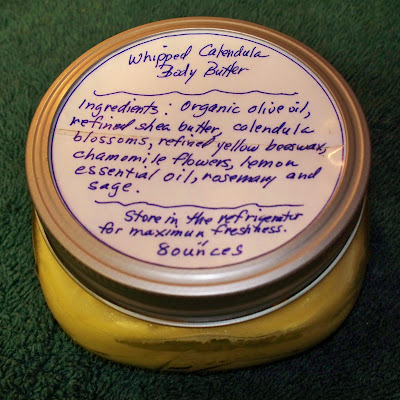 Whipped Calendula
Body Butter
Ingredients: Organic olive oil,
refined shea butter, calendula
blossoms, refined yellow beeswax,
chamomile flowers, lemon
essential oil, rosemary and
sage.
Store in the refrigerator
for maximum freshness.
8 ounces